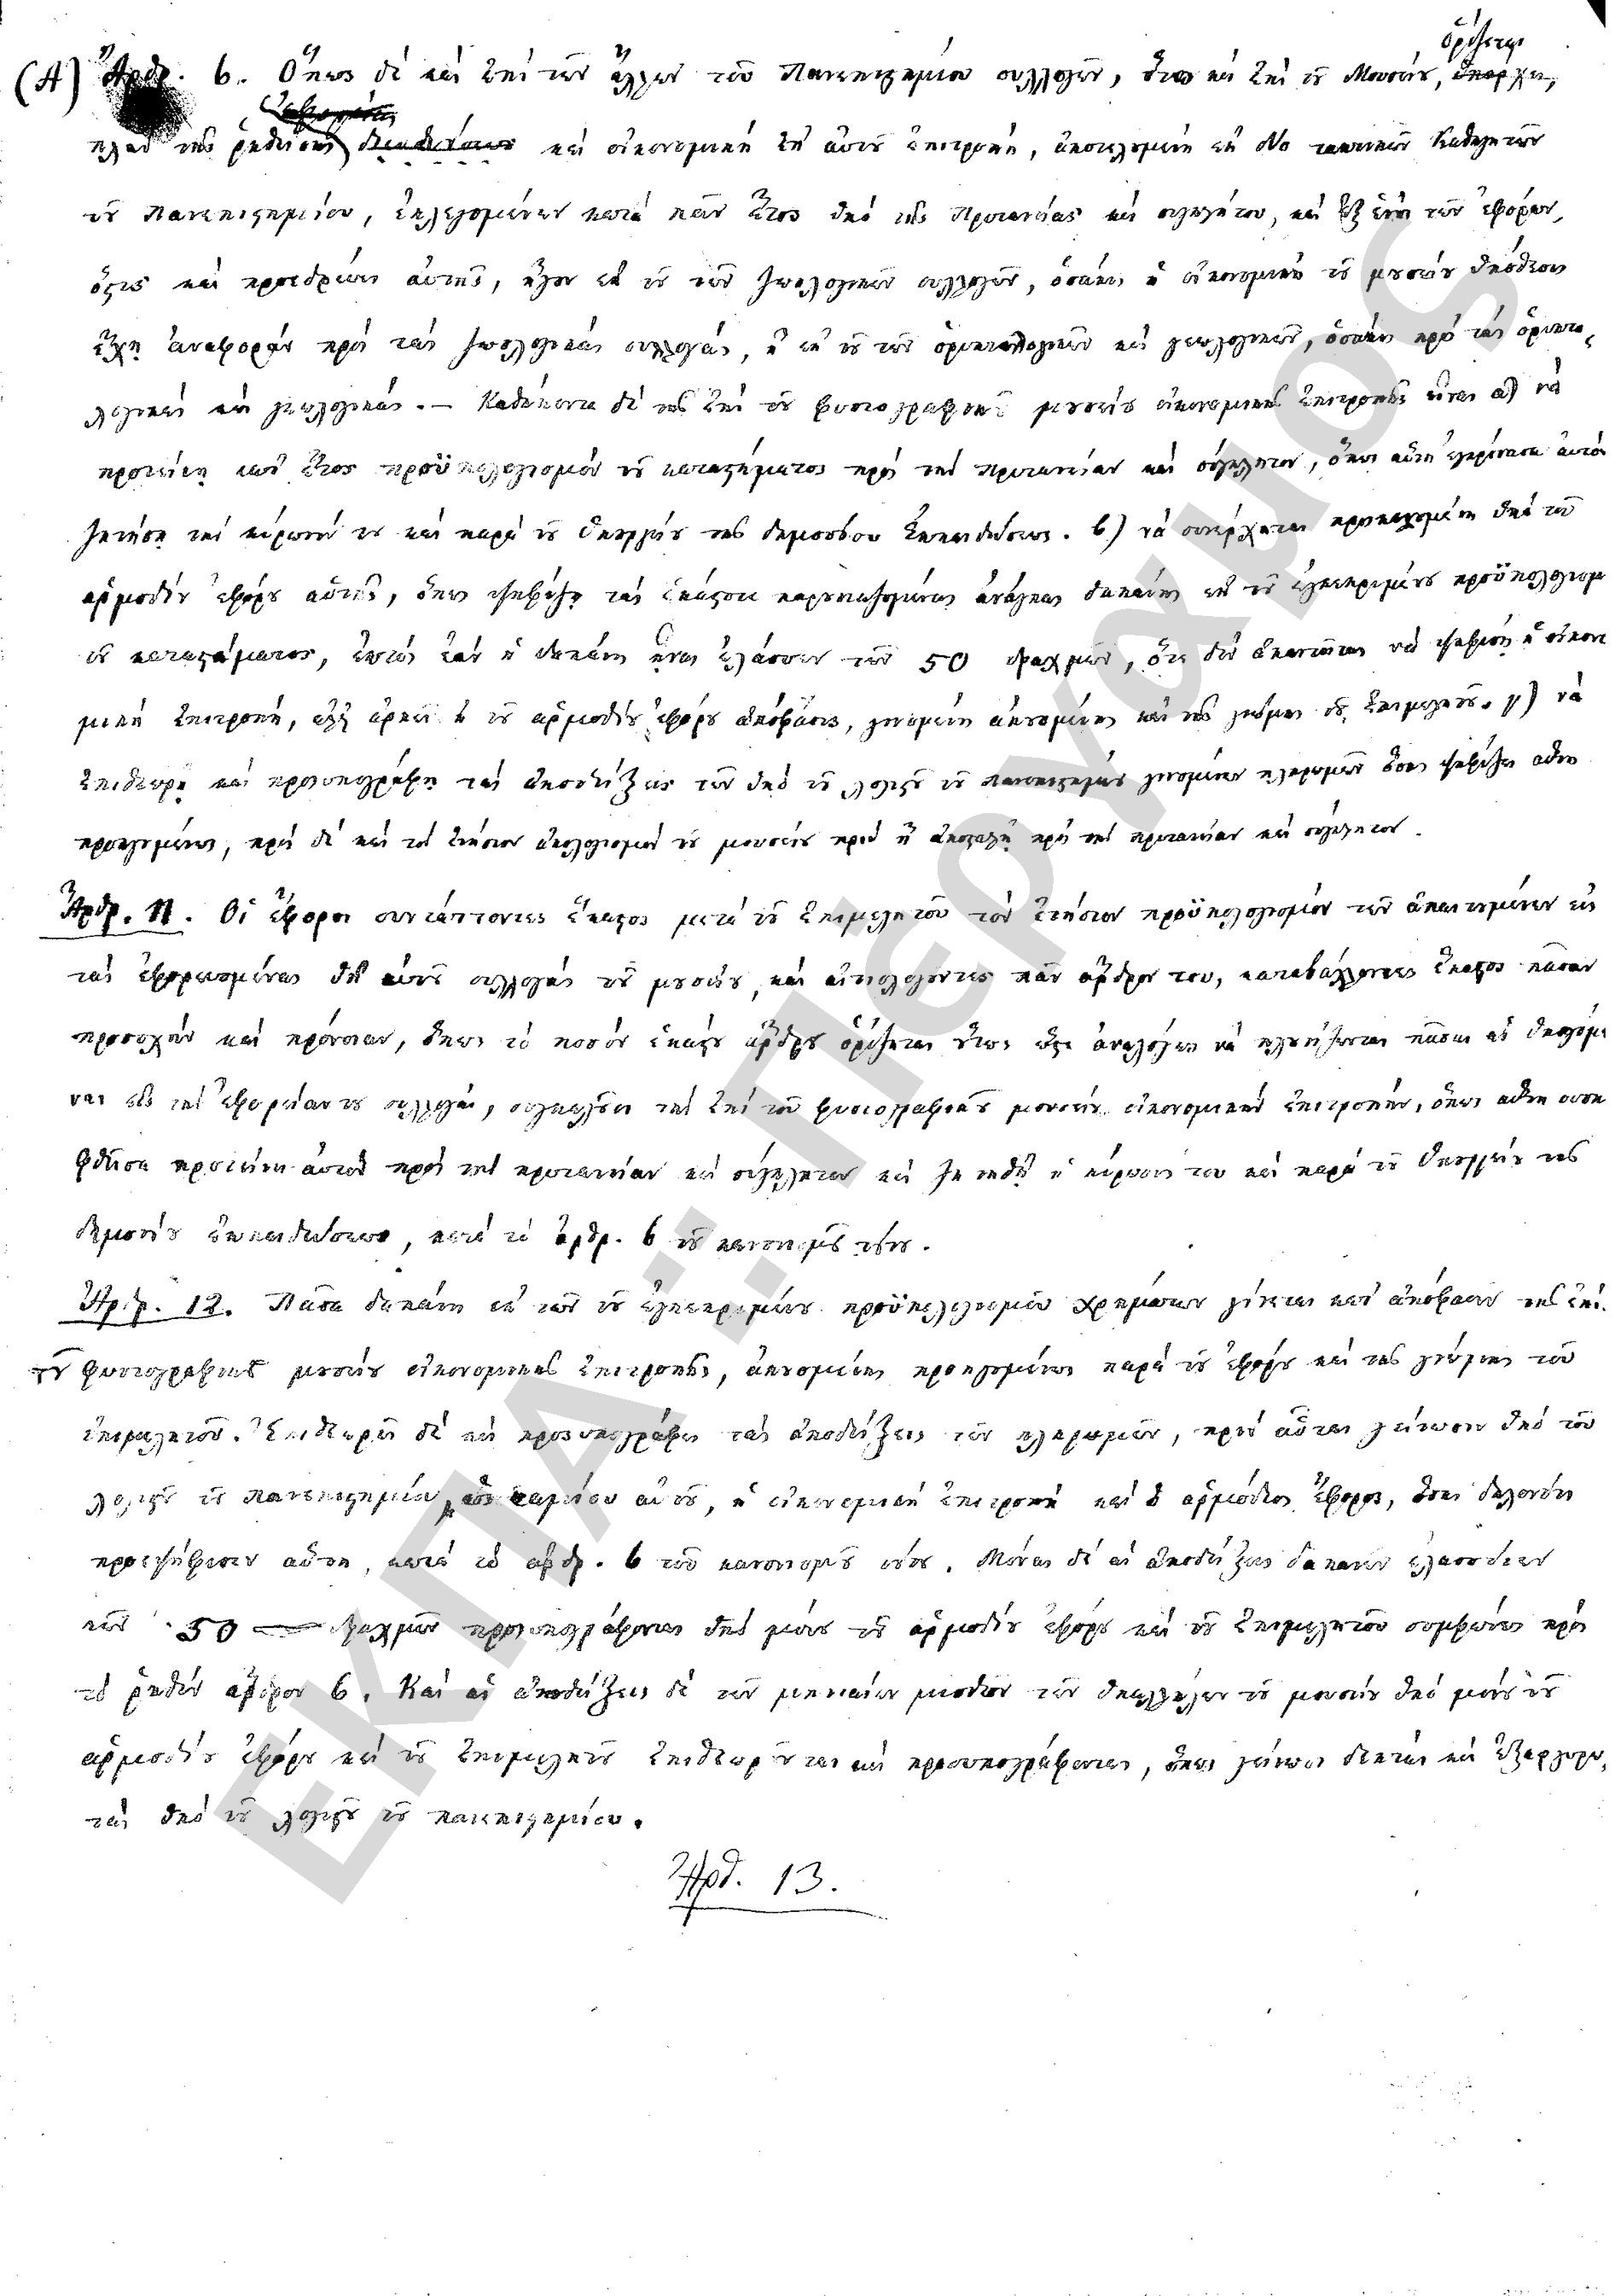 ὁρίζεται
(Α) Ἄρθρ. 6. Ὅπως δὲ καὶ ἐπὶ τῶν ἄλλων τοῦ Πανεπιστημίου συλλογῶν, οὕτω καὶ ἐπὶ τοῦ Μουσείου, ὑπάρχει,
πλὴν τῆς ῥηθείσης καὶ οἰκονομικὴ ἐπ' αὐτοῦ ἐπιτροπή, ἀποτελουμένη ἐκ δύο τακτικῶν Καθηγητῶν
τοῦ Πανεπιστημίου, ἐκλεγομένων κατὰ πᾶν ἔτος ὑπὸ τῆς Πρυτανείας καὶ συγκλήτου, καὶ ἐξ ἑνὸς τῶν ἐφόρων,
ὅστις καὶ προεδρεύει αὐτῆς, ἤτοι ἐκ τοῦ τῶν ζωολογικῶν συλλογῶν, ὁσάκις ἡ οἰκονομικὴ τοῦ μουσείου ὑπόθεσις
ἔχῃ ἀναφορὰν πρὸς τὰς ζωολογικὰς συλλογάς, ἢ ἐκ τοῦ τῶν ὀρυκτολογικῶν καὶ γεωλογικῶν, ὁσάκις πρὸς τὰς ὀρυκτο-
λογικὰς καὶ γεωλογικάς. — Καθήκοντα δὲ τῆς ἐπὶ τοῦ φυσιογραφικοῦ μουσείου οἰκονομικῆς ἐπιτροπῆς εἶναι α) νὰ
προτείνῃ κατ' ἔτος προϋπολογισμὸν τοῦ καταστήματος πρὸς τὴν πρυτανείαν καὶ σύγκλητον, ὅπως αὕτη ἐγκρίνασα αὐτὸν
ζητήσῃ τὴν κύρωσίν του καὶ παρὰ τοῦ ὑπουργείου τῆς δημοσίου ἐκπαιδεύσεως. β) νὰ συνέρχεται προσκαλουμένη ὑπὸ τοῦ
ἁρμοδίου ἐφόρου αὐτῆς, ὅπως ψηφίζῃ τὰς ἑκάστοτε παρουσιαζομένας ἀνάγκας δαπάνης ἐκ τοῦ ἐγκεκριμένου προϋπολογισμ
τοῦ καταστήματος, ἐκτὸς ἐὰν ἡ δαπάνη ἦναι ἐλάσσων τῶν 50 δραχμῶν, ὅτε δὲν ἀπαιτεῖται νὰ ψηφίσῃ ἡ οἰκονο
μικὴ ἐπιτροπή, ἀλλ' ἀρκεῖ ἡ τοῦ ἁρμοδίου ἐφόρου ἀπόφασις, γινομένη ἀκουομένης καὶ τῆς γνώμης τοῦ ἐπιμελητοῦ. γ) νὰ
ἐπιθεωρῇ καὶ προσυπογράφῃ τὰς ἀποδείξεις τῶν ὑπὸ τοῦ λογιστοῦ τοῦ πανεπιστημίου γινομένων πληρωμῶν ὅσας ψηφίζει αὕτη
προηγουμένως, πρὸς δὲ καὶ τὸν ἐτήσιον ἀπολογισμὸν τοῦ μουσείου πρὶν ἢ ἀποσταλῇ πρὸς τὴν πρυτανείαν καὶ σύγκλητον.
Ἄρθρ. 11. Οἱ ἔφοροι συντάττοντες ἕκαστος μετὰ τοῦ ἐπιμελητοῦ τὸν ἐτήσιον προϋπολογισμὸν τῶν ἀπαιτουμένων εἰς
τὰς ἐφορευομένας ὑπ' αὐτοῦ συλλογὰς τοῦ μουσείου, καὶ αἰτιολογοῦντες πᾶν ἄρθρον του, καταβάλλοντες ἕκαστος πᾶσαν
προσοχὴν καὶ πρόνοιαν, ὅπως τὸ ποσὸν ἑκάστου ἄρθρου ὁρίζεται οὕτως ὥστε ἀναλόγως νὰ πλουτίζωνται πᾶσαι αἱ ὑπαγόμε
ναι εἰς τὴν ἐφορείαν του συλλογαί, συγκαλοῦσι τὴν ἐπὶ τοῦ φυσιογραφικοῦ μουσείου οἰκονομικὴν ἐπιτροπήν, ὅπως αὕτη
προτείνῃ αὐτὸν πρὸς τὴν πρυτανείαν καὶ σύγκλητον καὶ ζητηθῇ ἡ κύρωσίς του καὶ παρὰ τοῦ ὑπουργείου τῆς
δημοσίου ἐκπαιδεύσεως, κατὰ τὸ ἄρθρ. 6 τοῦ κανονισμοῦ τούτου.
Ἄρθρ. 12. Πᾶσα δαπάνη ἐκ τῶν τοῦ ἐγκεκριμένου προϋπολογισμοῦ χρημάτων γίνεται κατ' ἀπόφασιν τῆς ἐπὶ
τοῦ φυσιογραφικοῦ μουσείου οἰκονομικῆς ἐπιτροπῆς, ἀκουομένης προηγουμένως παρὰ τοῦ ἐφόρου καὶ τῆς γνώμης τοῦ
ἐπιμελητοῦ. Ἐπιθεωρεῖ δὲ καὶ προσυπογράφει τὰς ἀποδείξεις τῶν πληρωμῶν, πρὶν αὗται γείνωσιν ὑπὸ τοῦ
λογιστοῦ τοῦ Πανεπιστημίου ταμείου αὐτοῦ, ἡ οἰκονομικὴ ἐπιτροπὴ καὶ ὁ ἁρμόδιος ἔφορος, ὅσας δηλονότι
προεψήφισεν αὕτη, κατὰ τὸ ἄρθρ. 6 τοῦ κανονισμοῦ τούτου. Μόναι δὲ αἱ ἀποδείξεις δαπανῶν ἐλασσόνων
τῶν 50 — δραχμῶν προσυπογράφονται ὑπὸ μόνου τοῦ ἁρμοδίου ἐφόρου καὶ τοῦ ἐπιμελητοῦ συμφώνως πρὸς
τὸ ῥηθὲν ἄρθρον 6. Καὶ αἱ ἀποδείξεις δὲ τῶν μηνιαίων μισθῶν τῶν ὑπαλλήλων τοῦ μουσείου ὑπὸ μόνου τοῦ
ἁρμοδίου ἐφόρου καὶ τοῦ ἐπιμελητοῦ ἐπιθεωροῦνται καὶ προσυπογράφονται, ὅπως γείνωσι δεκταὶ καὶ ἐξαργυρω
ταὶ ὑπὸ τοῦ λογιστοῦ τοῦ πανεπιστημίου.
Ἄρθ. 13.
ΕΚΠΑ: Ιστορικό